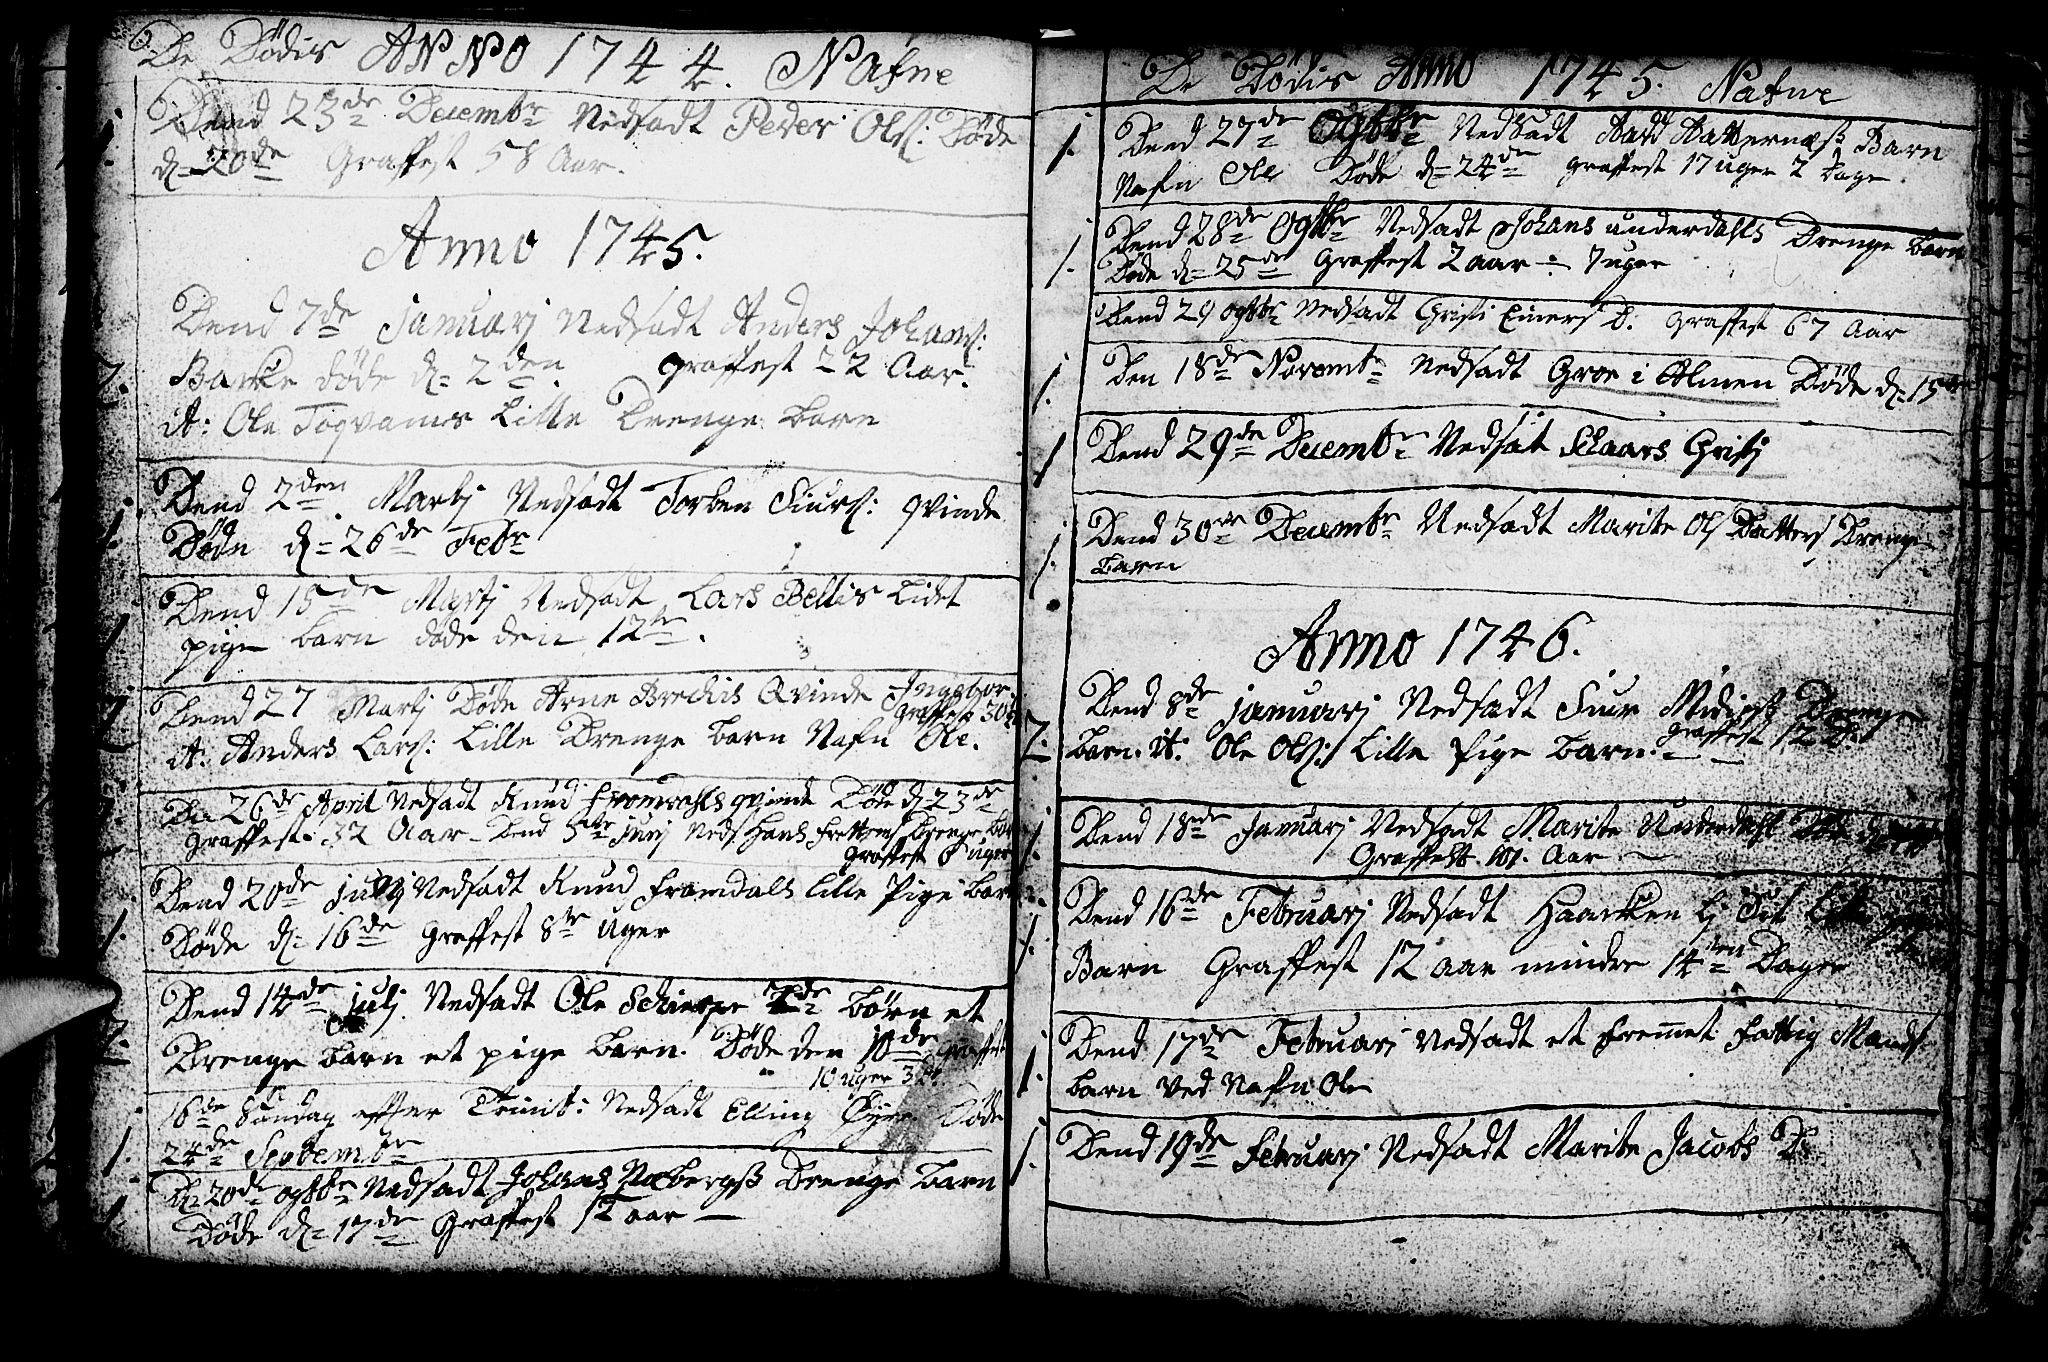 De Dödis ANNO 1744. Nafne
Dend 23de Decembr Nedsadt Peder Ols: Döde
1. d= 20de Graffest 58 Aar.
Anno 1745.
Dend 7de Januarj Nedsadt Anders Johans:
2. Bakke döde d= 2den. graffest - 2 Aar.
it: Ole Toqvams Lille Drenge barn
Dend 2den Martj Nedsadt Torben Siurs: qvinde
1. Döde d= 26de Febr
Dend 15de Martj Nedsadt Lars Bellis Lidet
1. pige barn döde den 12te.
Dend 27 Martj Döde Arne Brechis Qvinde Ingebor
graffest 30
2. it: Anders Lars: Lille Drenge barn Nafn Ole.
Den 26de April Nedsadt Knud Fromdahls qvinde Döde d= 23de
graffest: 32 Aar - Dend 5te Junj Neds: Hans Frettems Drenge bar
graffest 6 uger
Dend 20de julij Nedsadt Knud Framdals lille Pige barn
1. Döde d= 16de graffest 8te uger
Dend 14de julj Nedsadt Ole Schierpe 2de börn et
2. Drenge barn et pige barn. Döde den 10de graffest
10 uger 3 D.
16de Sündag efter Trinit: Nedsadt Elling Öyre Döde
1. 24de Septembr
D= 20de Ogtbr Nedsadt Johans Nesbergs Drenge barn
1. Döde d= 17de graffest 12 aar —
De Dödis Anno 1745. Nafne
1. Dend 27de Ogtbr Nedsadt Aard Hatternæss Barn
Nafn Ole Döde d= 24de graffest 17 uger 2 dage.
Dend 28de Ogtbr Nedsadt Johans underdahls Drenge barn
1. Döde d= 25de graffest 2 aar - 7 uger
Dend 29 Ogtbr Nedsadt Gristi Einers D. graffest 67 Aar
1. Den 18de Novembr Nedsadt Groe i Olmen Döde d= 15de
1 Dend 29de Decembr Nedsat Schaars Gristj
Dend 30de Decembr Nedsadt Marite Ols Datters Drenge
1. barn
Anno 1746.
Dend 8de januarj Nedsadt Siur Drenge
graffest 12
2. barn. it: Ole Ols: Lille Pige barn. —
1. Dend 18de Januarj Nedsadt Marite Underdahl
Graffest 101. Aar —
Dend 16de Februarj Nedsadt Haacken Lille
1. Barn Graffest 12 aar mindre 14ten Dage
Dend 17de Februarj Nedsadt et fremmet fattig Mands
1. barn ved Nafn Ole
1. Dend 19de Februarj Nedsadt Marite Jacobs D